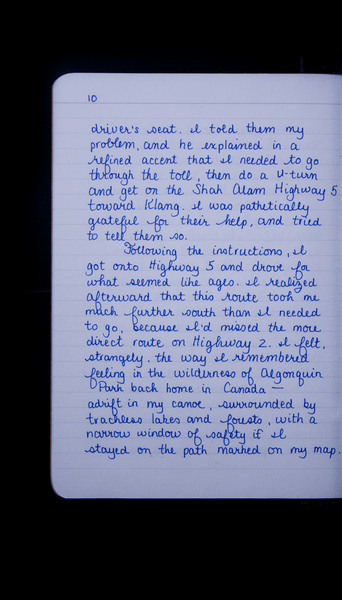 10
driver's seat. I told them my
problem, and he explained in a
refined accent that I needed to go
through the toll, then do a U-turn
and get on the Shah Alam Highway 5
toward Klang. I was pathetically
grateful for their help, and tried
to tell them so.
Following the instructions, I
got onto Highway 5 and drove for
what seemed like ages. I realized
afterward that this route took me
much further south than I needed
to go, because I'd missed the more
direct route on Highway 2. I felt,
strangely, the way I remembered
feeling in the wilderness of Algonquin
Park back home in Canada —
adrift in my canoe, surrounded by
trackless lakes and forests, with a
narrow window of safety if I
stayed on the path marked on my map.